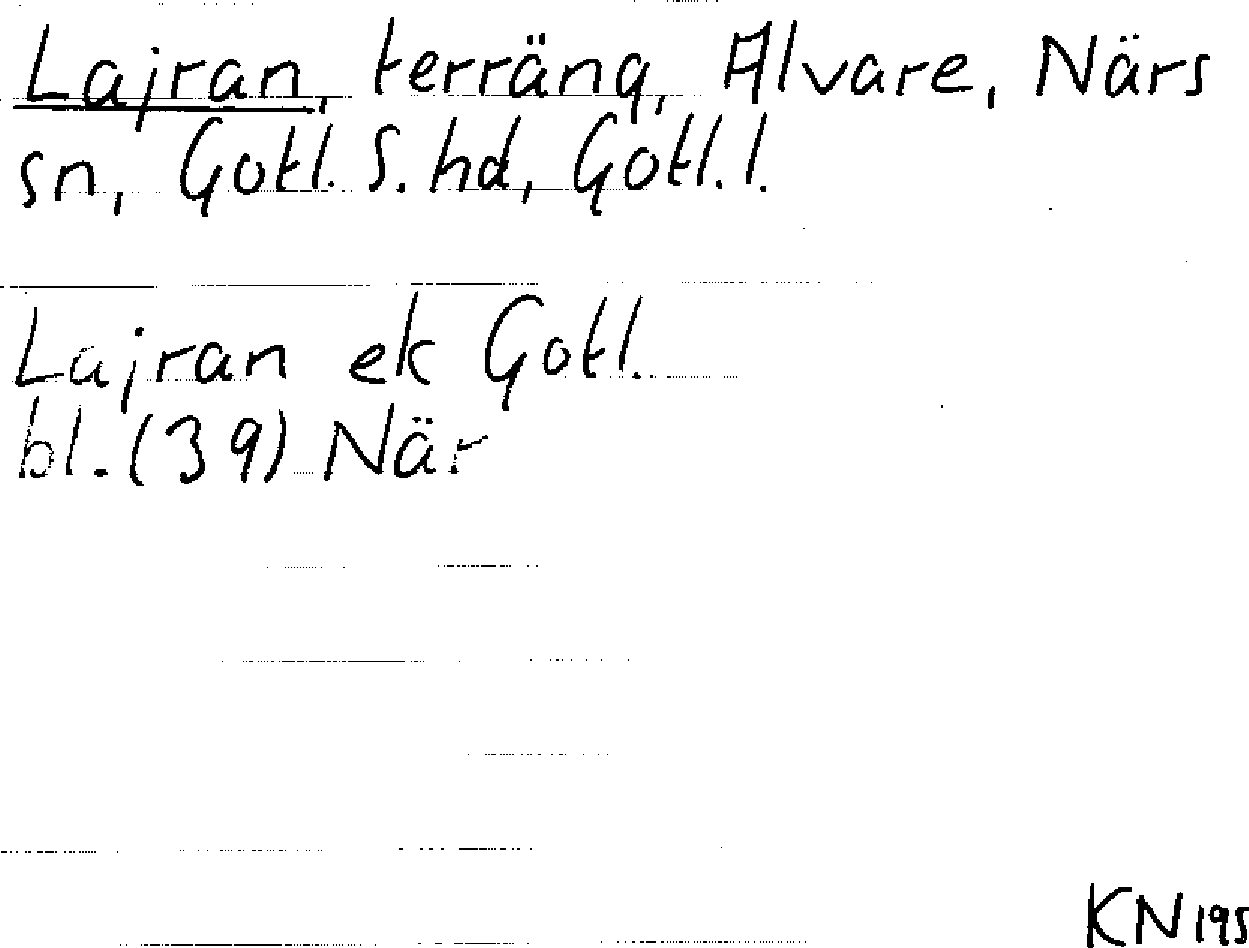 Lajran, terräng, Alvare, Närs
sn, Gotl. S. hd, Gotl. l.
Lajran ek Gotl.
bl. (39) När
KN 195